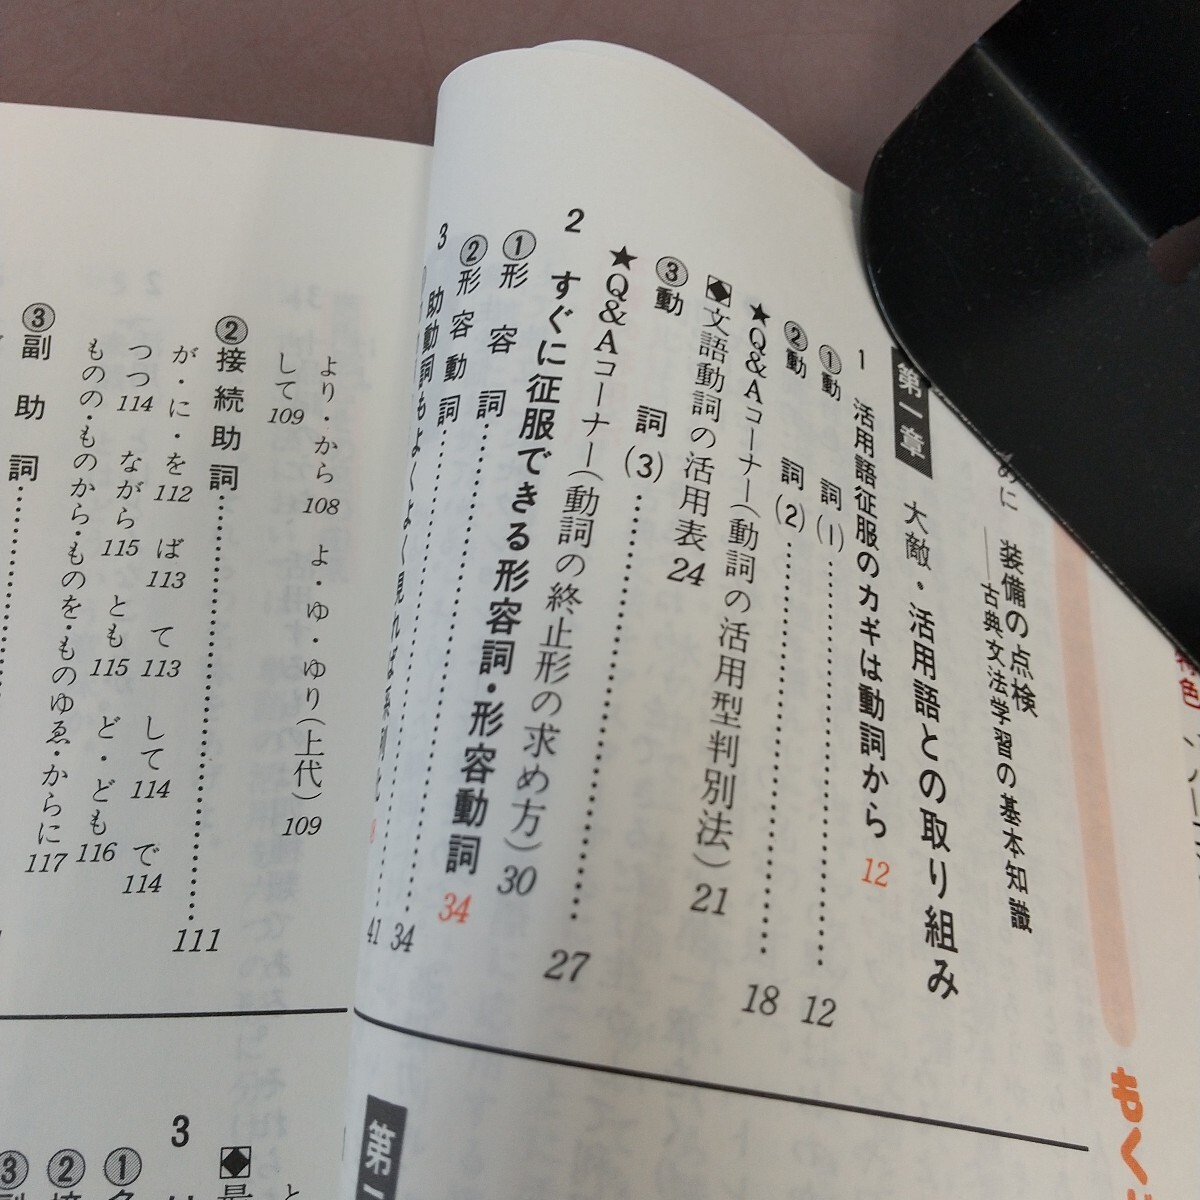 もくじ
めに 装備の点検
──古典文法学習の基本知識
第一章 大敵・活用語との取り組み
1 活用語征服のカギは動詞から 12
①動 詞(1) 12
②動 詞(2) 18
★Q&Aコーナー(動詞の活用型判別法) 21
◆文語動詞の活用表 24
③動 詞(3) 27
★Q&Aコーナー(動詞の終止形の求め方) 30
2 すぐに征服できる形容詞・形容動詞 34
①形 容 詞 34
②形 容 動 詞 41
3 助動詞もよくよく見れば系列化
より・から 108 よ・ゆ・ゆり(上代) 109
して 109
②接 続 助 詞 111
が・に・を 112 ば 113 て 113 して 114 で 114
つつ 114 ながら 115 とも 115 ど・ども 116
ものの・ものから・ものを・ものゆゑ・からに 117
③副 助 詞
第一
3
①
②
③